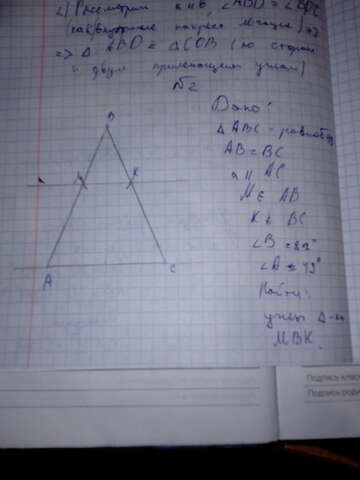 2) Рассмотрим a ıı в ∠ABD = ∠BDC
(как внутренние накрест лежащие) =>
=> Δ ABD = ΔCDB (по стороне
и двум прилежащим углам)
№2
Дано:
Δ ABC - равнобед
AB = BC
a || AC
M ∈ AB
K ∈ BC
∠B = 82°
∠A = 49°
Найти:
углы Δ-ка
MBK.
B
M
K
A
C
Подпись клас
Подпись роди